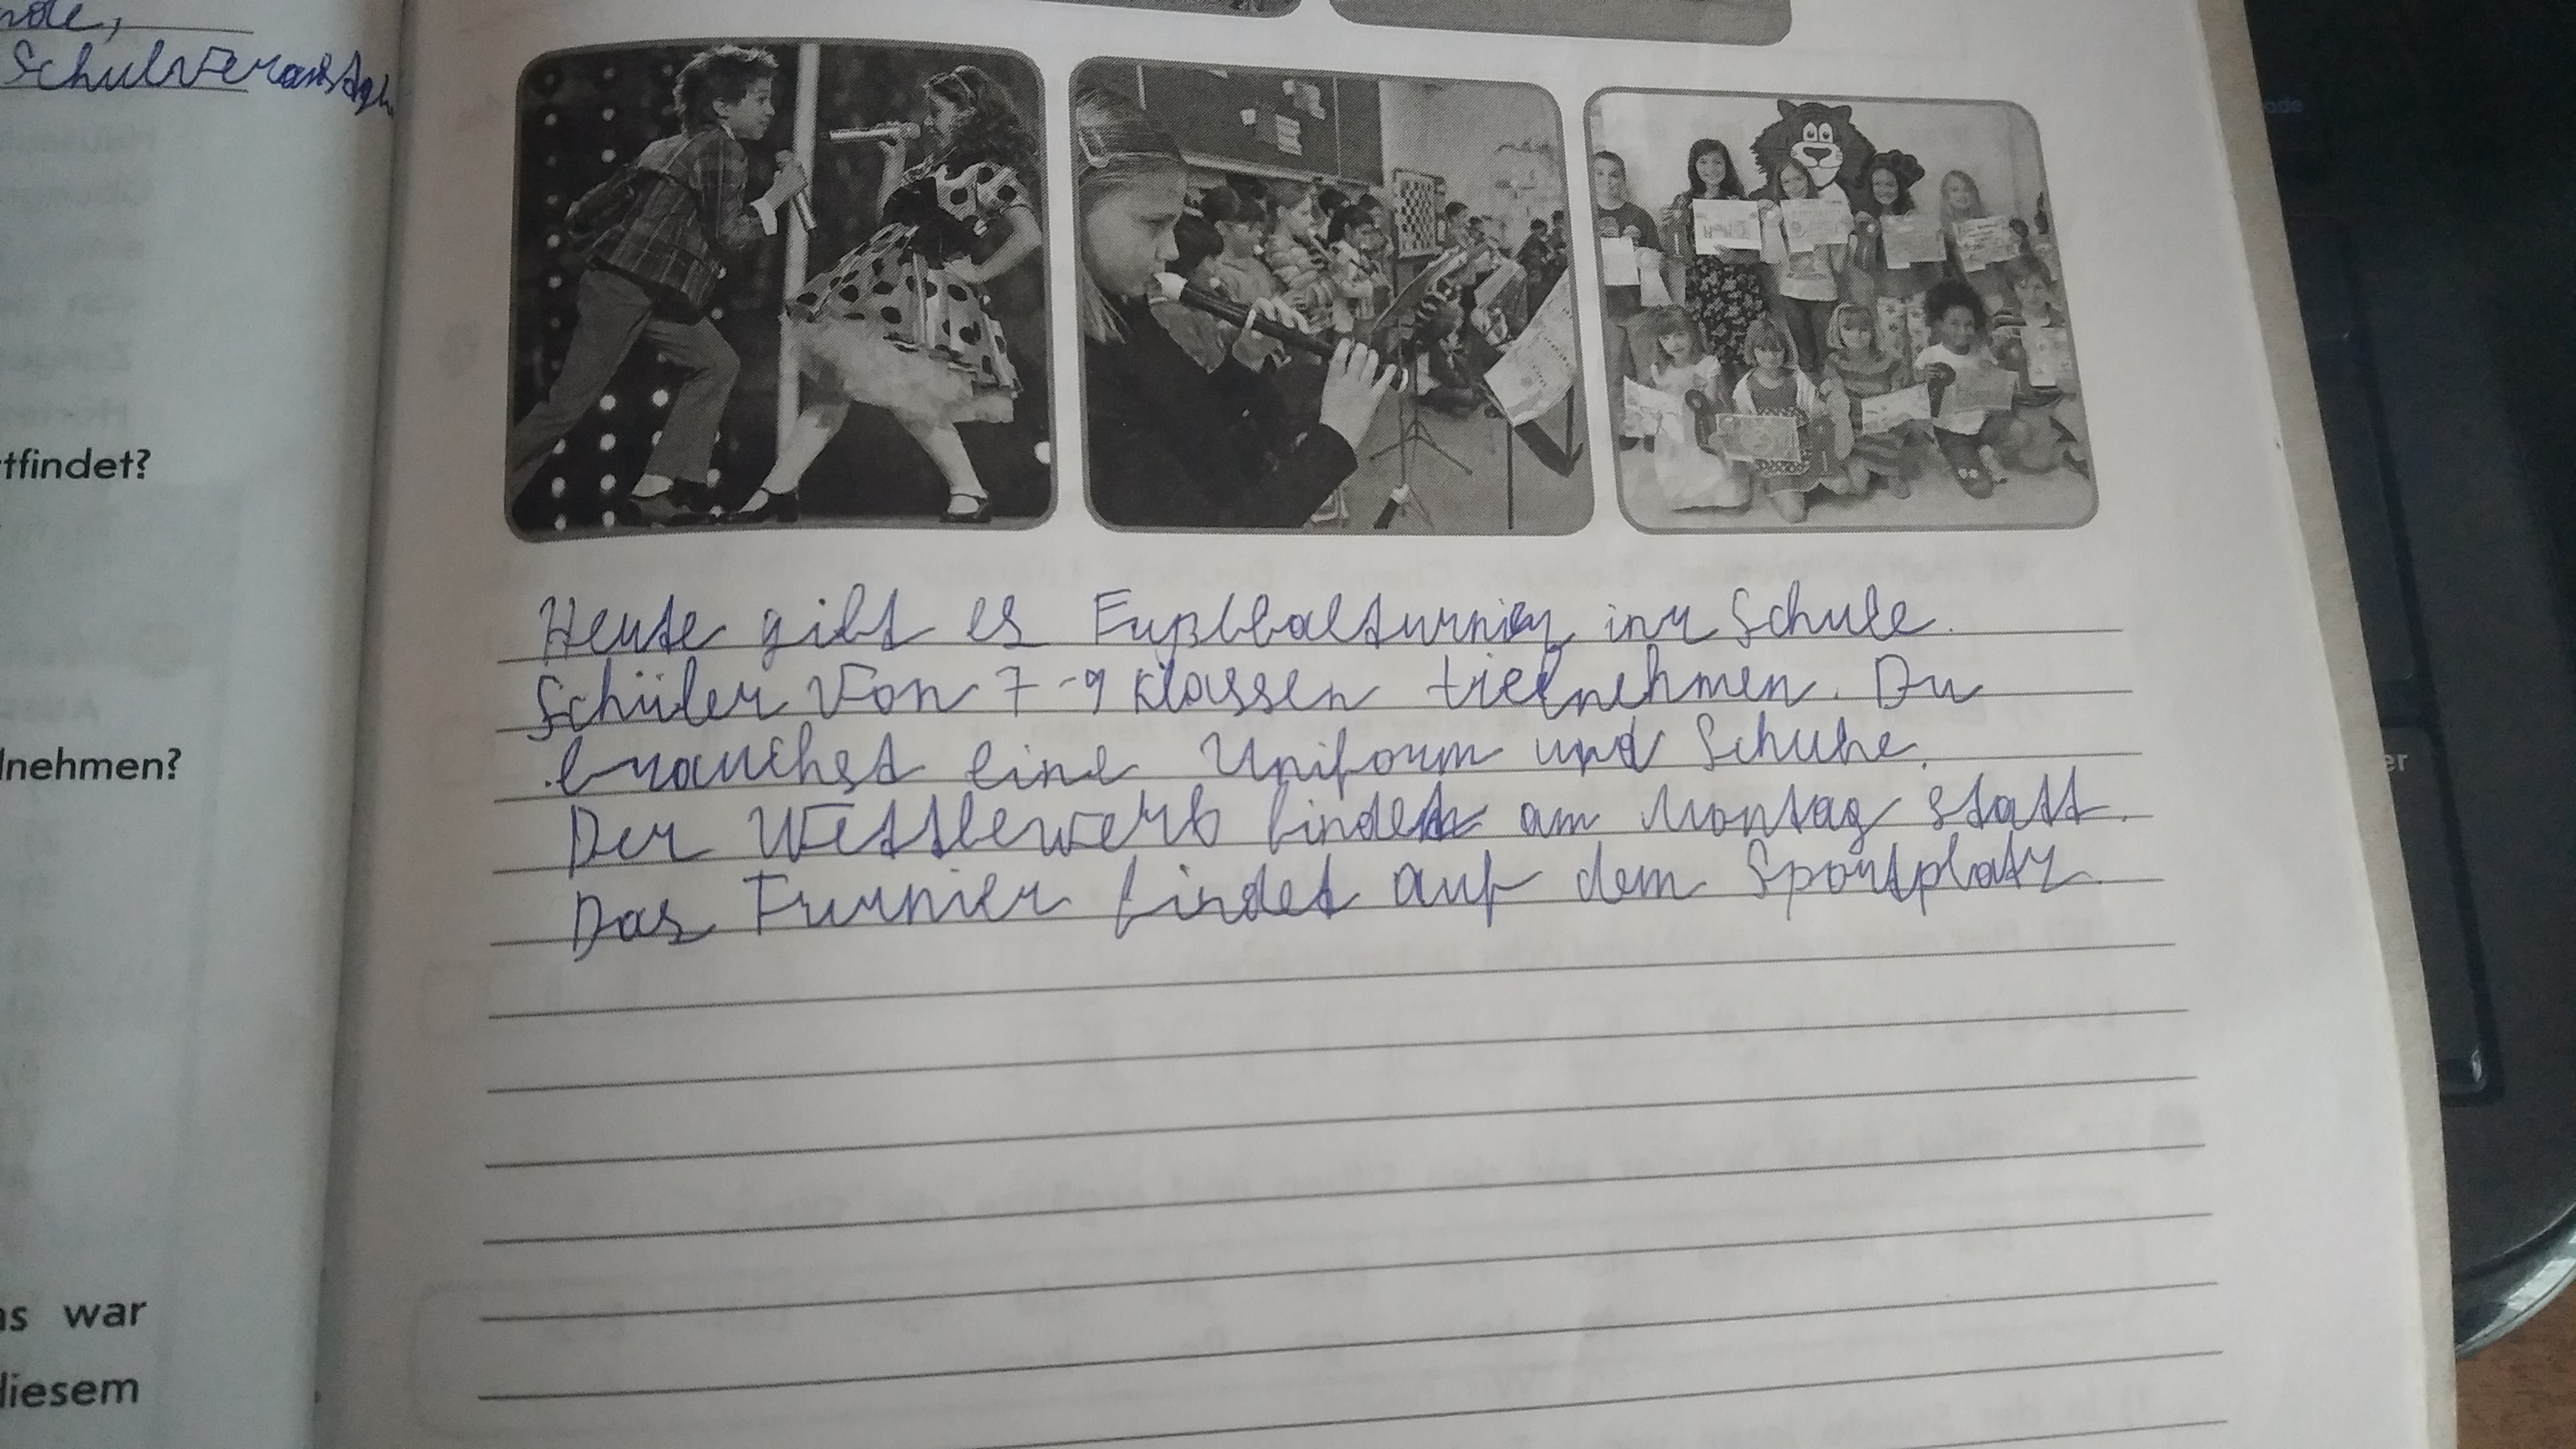 nde,
Schulveranstal
tfindet?
lnehmen?
as war
diesem
Heute gibt es Fußballturnier inr Schule.
Schüler von 7-9 Klassen tielnehmen. Du
brauchst eine Uniform und Schuhe.
Der Wettbewerb findet am Montag statt.
Das Turnier findet auf dem Sportplatz.